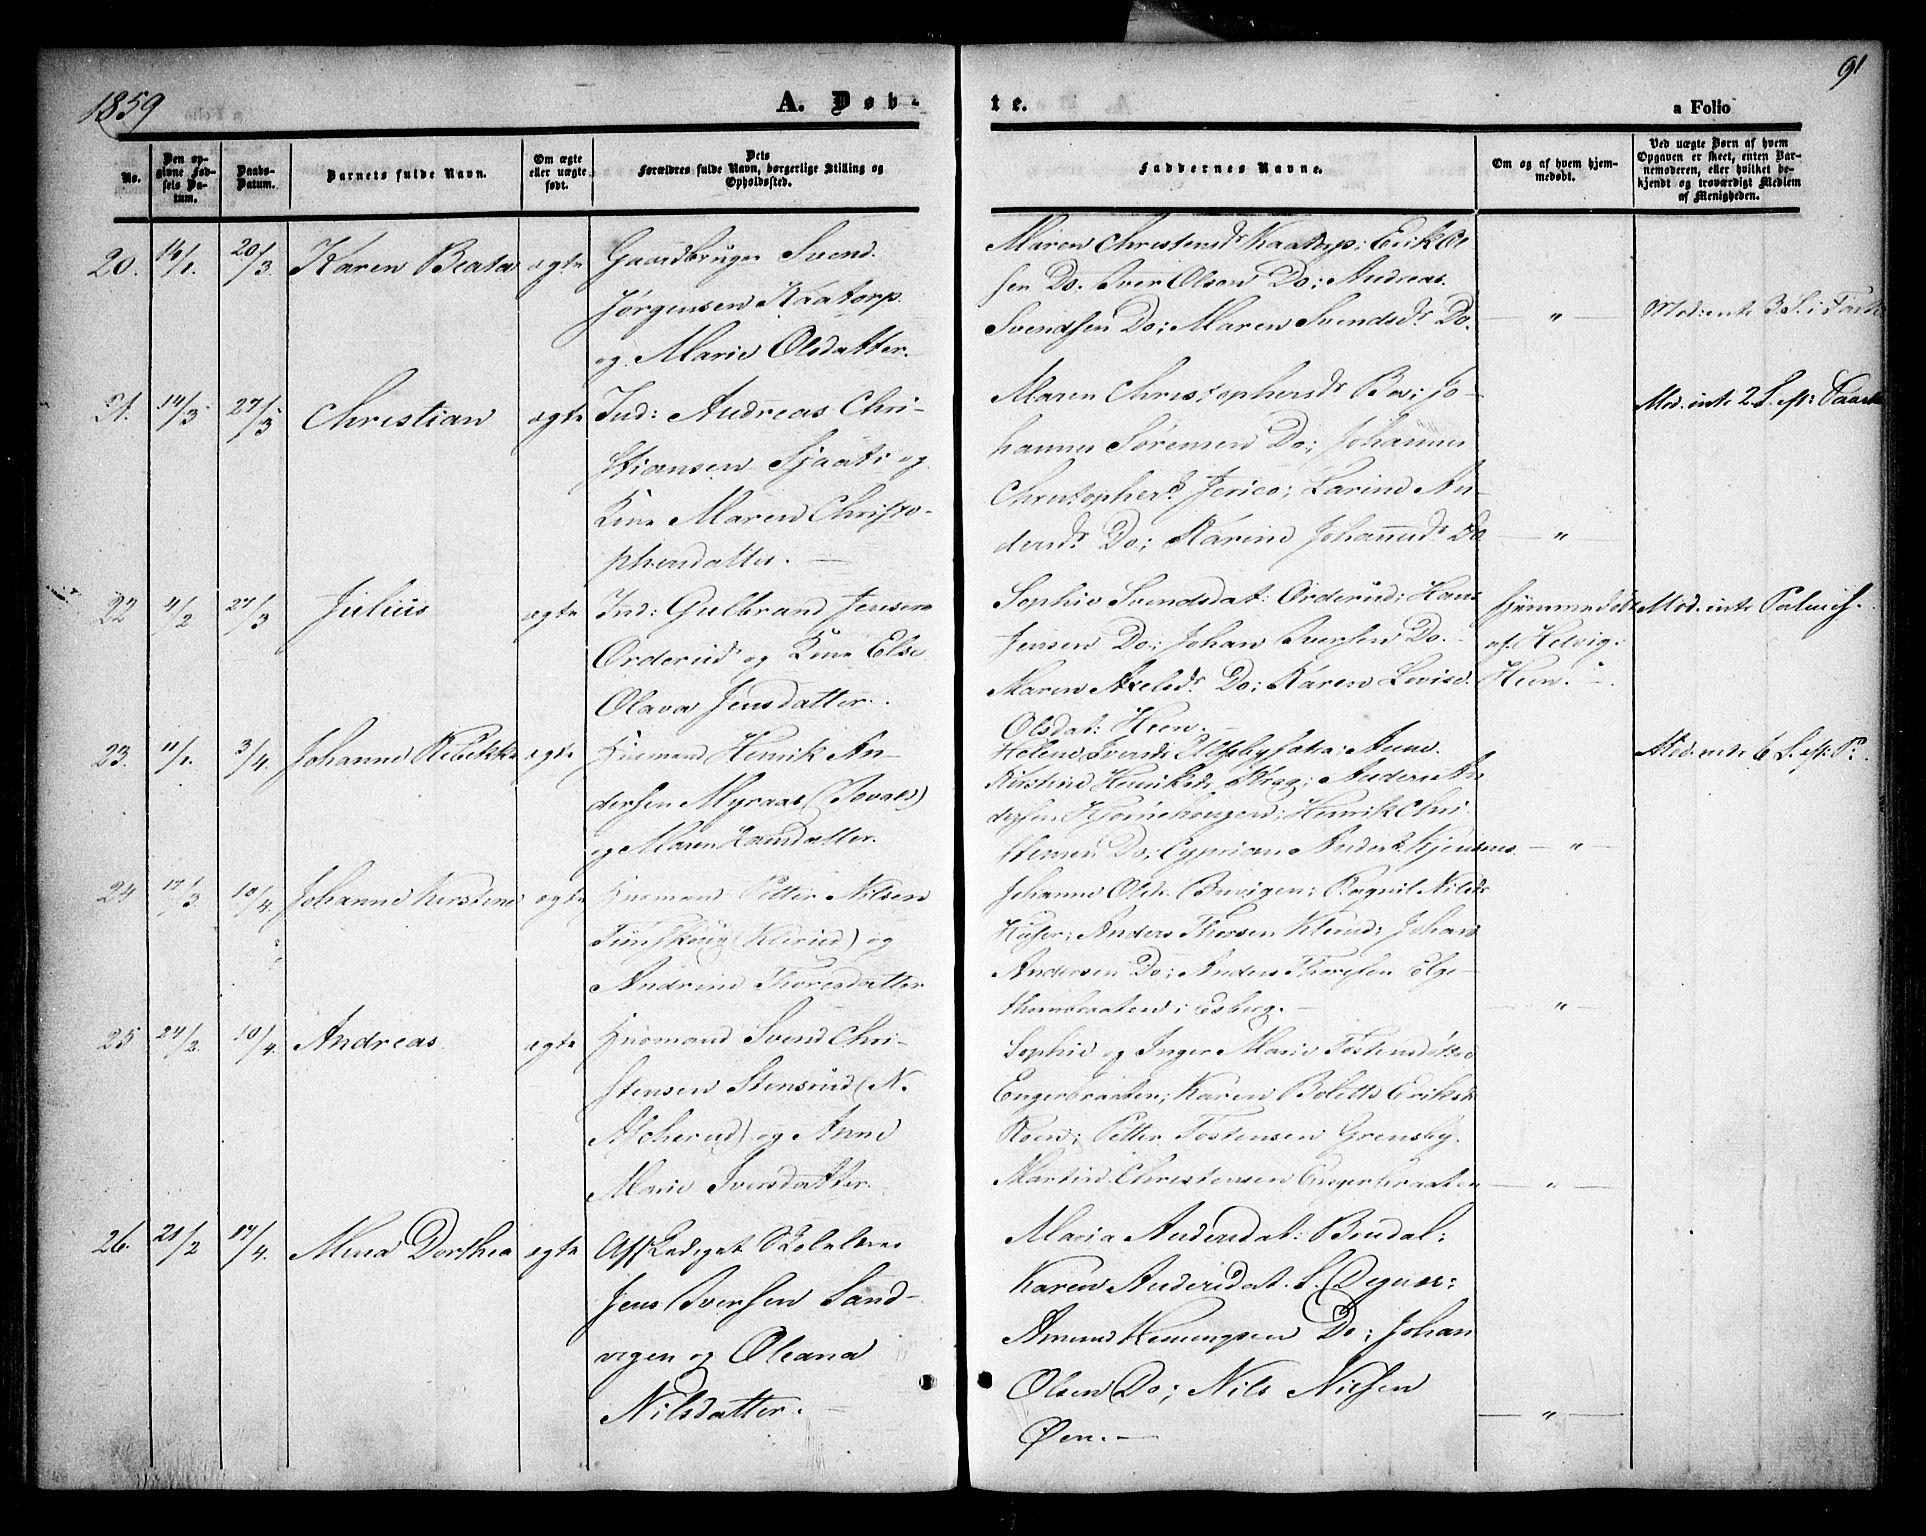 1859
A. Døb-
te.
a Folio
91
No.
Den op-
givne Fød-
sels Da-
tum.
Daabs-
Datum.
Barnets fulde Navn.
Om ægte
eller uægte
født.
Dets
Forældres fulde Navn, borgerlige Stilling og
Opholdssted.
Faddernes Navne.
Om og af hvem hjem-
medøbt.
Ved uægte Børn af hvem
Opgaven er skeet, enten Bar-
nemoderen, eller hvilket be-
kjendt og troværdigt Medlem
af Menigheden.
20. 14/1. 20/3. Karen Beata ægte Gaardbruger Svend
Jørgensen Kaatorp
og Marie Olsdatter.
Maren Christensdr Kaatorp; Erik Ol
sen Do. Iver Olsen Do; Andreas
Svendsen Do; Maren Svendsdr Do.
— " —
Mod: int: 3. S. i Faste
21. 14/3. 27/3 Christian ægte Ind: Andreas Chri-
stiansen Sjaati og
Kone Maren Christo-
phersdatter. —
Maren Christophersdr Bøe; Jo-
hannes Sørensen Do; Johannes
Christophers. Jerico; Larine An-
dersdr Do; Karine Johannesdr Do
— " —
Mod. int: 2 S. ef: Paaske
22 4/2 27/3 Julius ægte Ind: Gulbrand Jensen
Orderud og Kone Else
Olava Jensdatter.
Sophie Svendsdat: Orderud; Hans
Jensen Do; Johan Iversen Do.
Maren Axelsdr Do; Karen Lovise
Olsdat: Heen. —
hjemmedøbt
af Helvig
Heen.
Mod. int:
23. 11/1. 3/4. Johanne Rebekka ægte Husmand Henrik An-
dersen Myraas
og Maren Hansdatter.
Helene
Kirstine Henriksdr Krog; Anders An
dersen; Henrik Chri
stensen Do; Cyprian
— " —
Mod. int: 6 S. ef: P.
24 17/3 10/4. Johanne Kirstine ægte Husmand Petter Nilsen
(Klerud) og
Andrine Thoresdatter
Johanne; Ragnil Nilsdr
Huser; Anders Thoresen Klerud; Johan
Andersen Do; Anders Thoresen
— " —
25 24/2. 10/4. Andreas ægte Husmand Svend Chri-
stensen Stensrud (N.
Acherud) og Anne
Marie Iversdatter.
Sophie og Inger Marie
Engerbraaten; Karen Bolette Eriksdr
Roen; Petter Tostensen Grensby.
Martin Christensen Engerbraaten
— " —
26. 21/2 17/4. Mina Dorthea ægte Afskediget Skolelærer
Jens Iversen Sand-
vigen og Oleana
Nilsdatter. —
Maria Andersdat:
Karen Andersdat. S. Degnes;
Amund Hemingsen Do; Johan
Olsen Do; Nils Nilsen
Øen. —
— " —